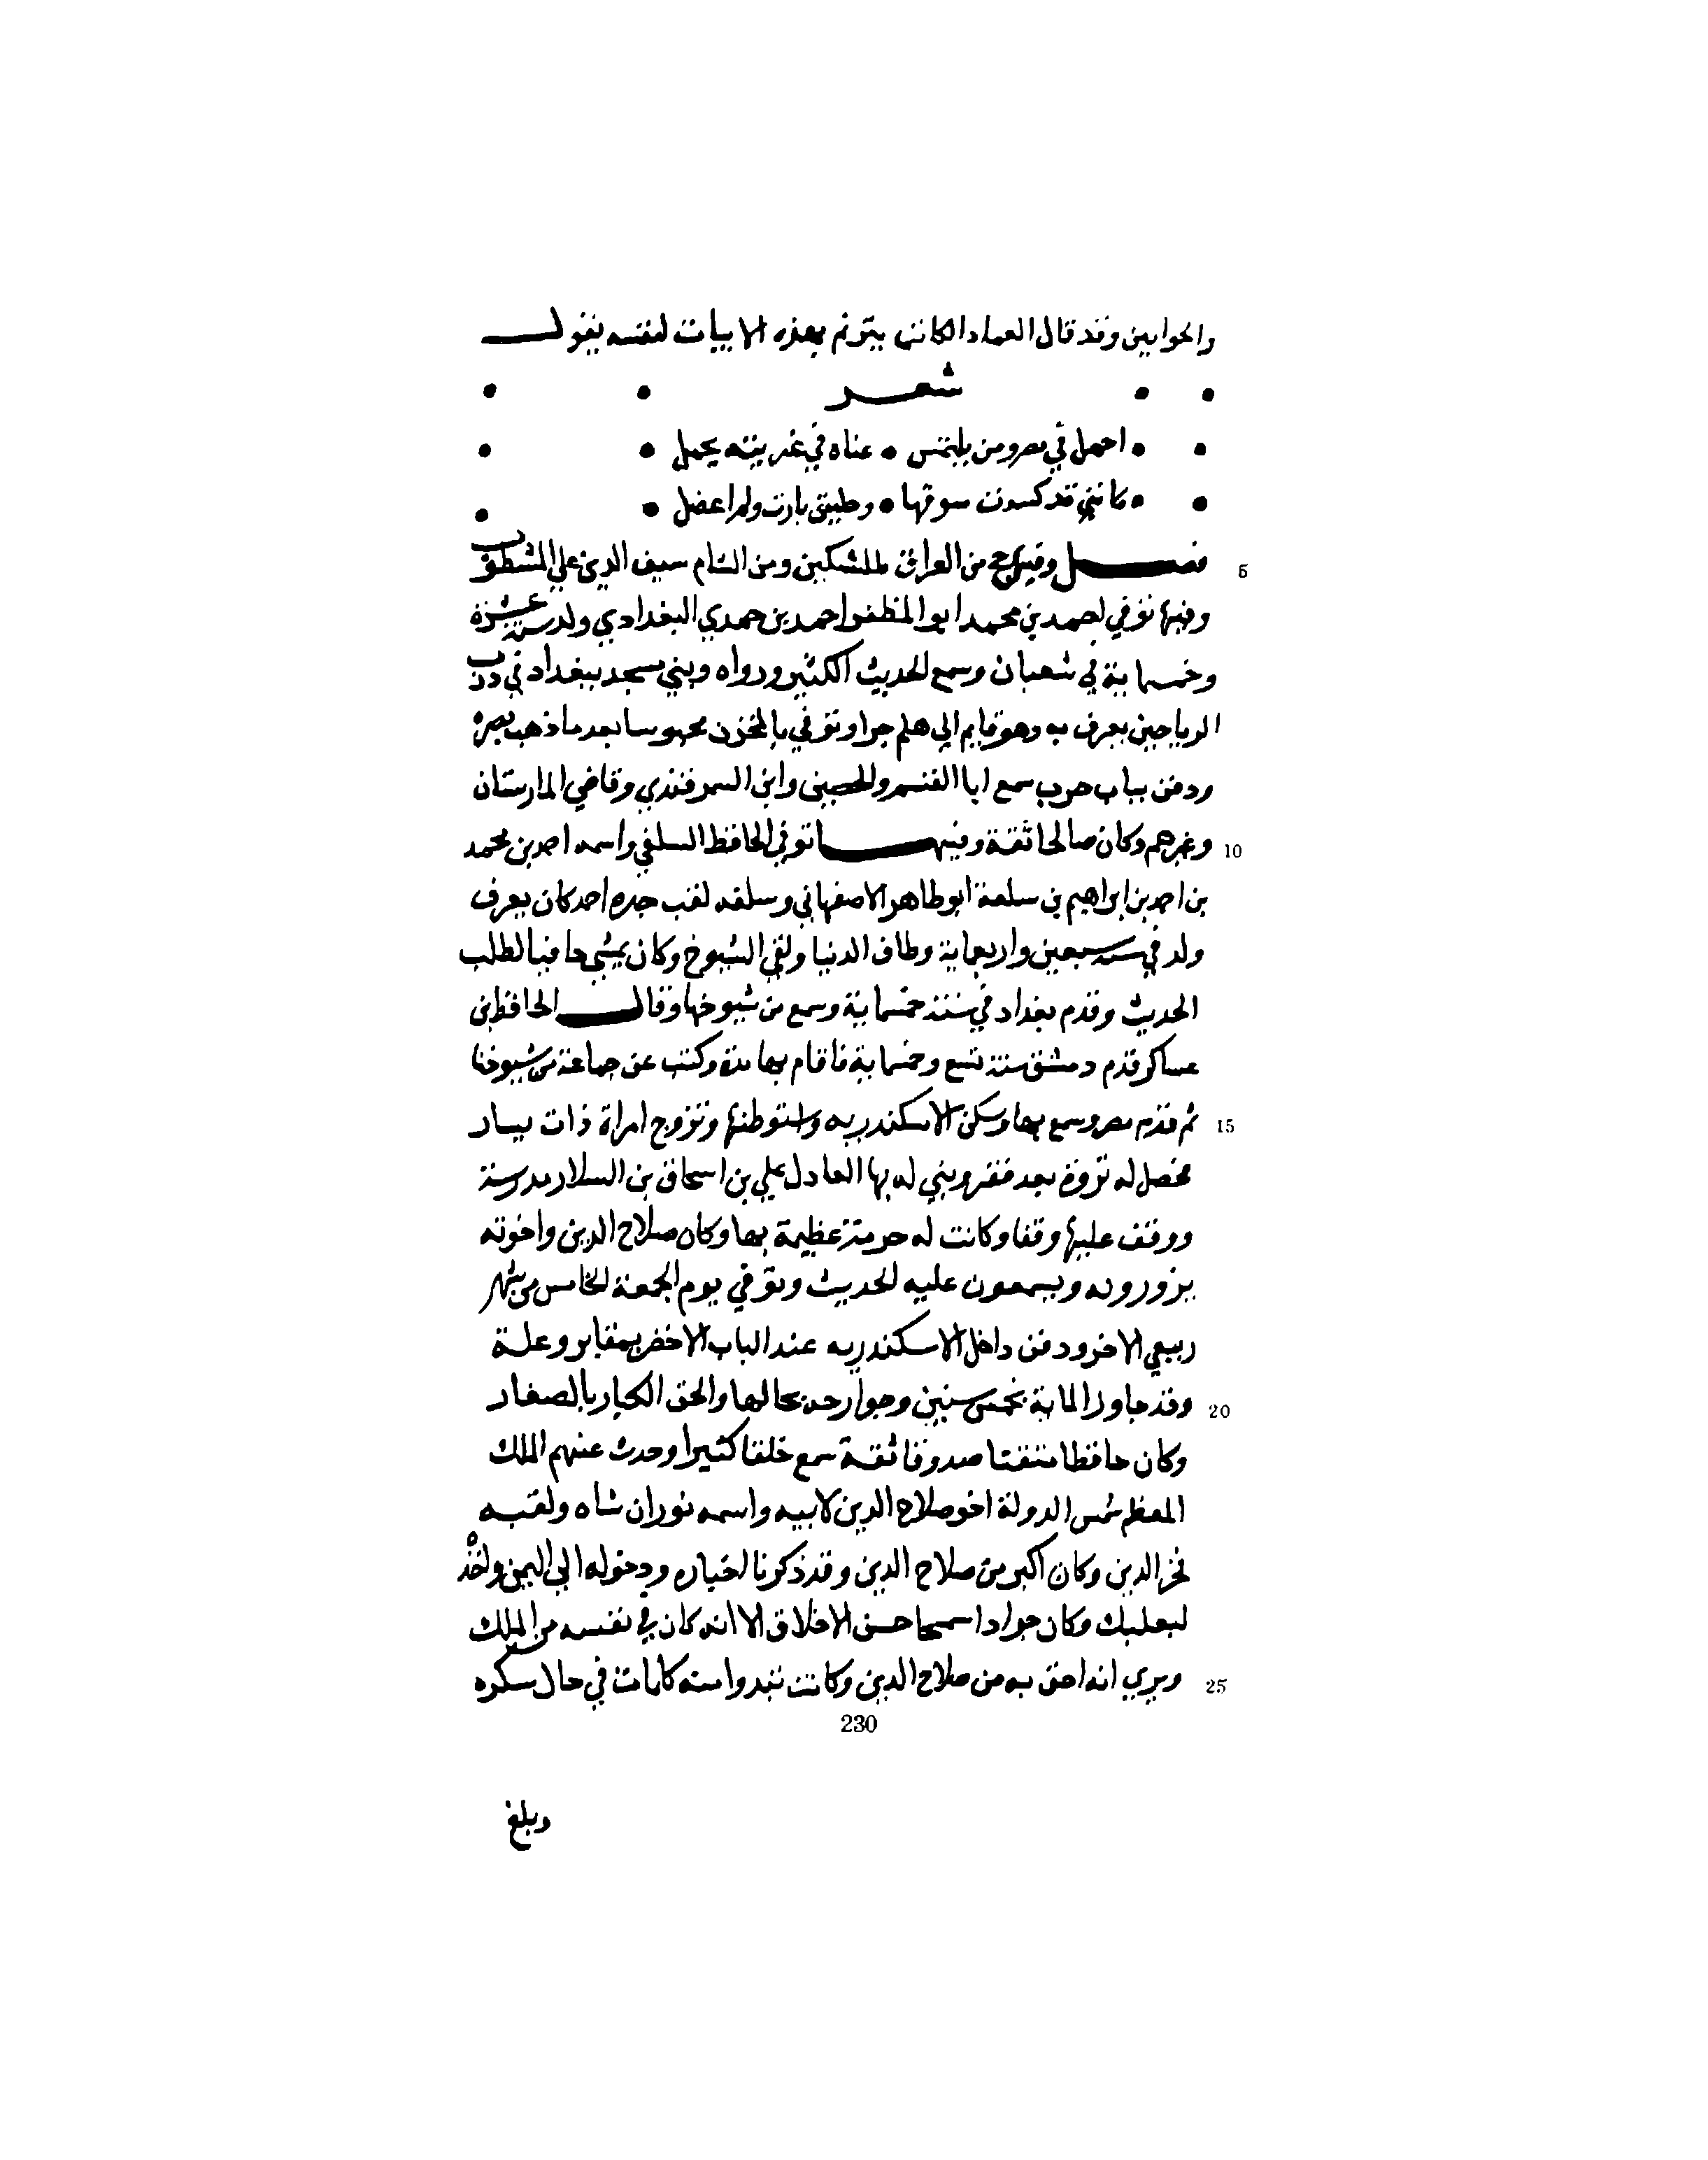 والخوابين وقد قال العماد الكاتب يترنم بهذه الابيات لنفسه يقول
شعر
احمل في مصر ومن يلتمس عناه في غر بيته يحمل
كانني قد كسدت سوقها وطيبتي بارت ولم اعضل
فصل وفيها حج من العراق طاشتكين ومن الشام سيف الدين علي المشطوب 5
وفيها توفي احمد بن محمد ابو المظفر احمد بن حمدي البغدادي ولد سنة عشرة
وخمسماية في شعبان وسمع الحديث الكثير ورواه وبني مسجد ببغداد في درب
الدياجين يعرف به وهو قايم الي هلم جرا وتوفي بالمخزن محبوسا بعد ما ذهب بصره
ودفن بباب حرب سمع ابا القسم والحصيني وابن السمرقندي وقاضي المارستان
وغيرهم وكان صالحا ثقة وفيها توفي الحافظ السلفي واسمه احمد بن محمد 10
بن احمد بن ابراهيم بن سلعة ابو طاهر الاصفهاني وسلفه لقب جده احمد كان يعرف
ولد في سنة سبعين واربعماية وطاف الدنيا ولقي الشيوخ وكان يمشي حافيا لطلب
الحديث وقدم بغداد في سنة خمسماية وسمع من شيوخها وقال الحافظ بن
عساكر قدم دمشق سنة تسع وخمسماية فاقام بها مدة وكتب عن جماعة من شيوخنا
ثم قدم مصر وسمع بها وسكن الاسكندريه واستوطنها وتزوج امراة ذات يسار 15
فحصل له ثروة بعد فقر وبني له بها العادل علي بن اسحاق بن السلار مدرسة
ووقف عليها وقفا وكانت له حرمة عظيمة بها وكان صلاح الدين واخوته
يزورونه ويسمعون عليه الحديث وتوفي يوم الجمعة الخامس من شهر
ربيع الاخر ودفن داخل الاسكندريه عند الباب الاخضر بمقابر وعلة
وقد جاوز الماية بخمس سنين وجوارحه بحالها والحق الكبار بالصغار 20
وكان حافظا متقنا صدوقا ثقة سمع خلقا كثيرا وحدث عنهم الملك
المعظم شمس الدولة اخو صلاح الدين لابيه واسمه توران شاه ولقبه
فخر الدين وكان اكبر من صلاح الدين وقد ذكرنا اخباره ودخوله الي اليمن واخذه
لبعلبك وكان جوادا سمحا حسن الاخلاق الا انه كان في نفسه من الملك
ويري انه احق به من صلاح الدين وكانت تبدوا منه كلمات في حال سكره 25
230
ويبلغ